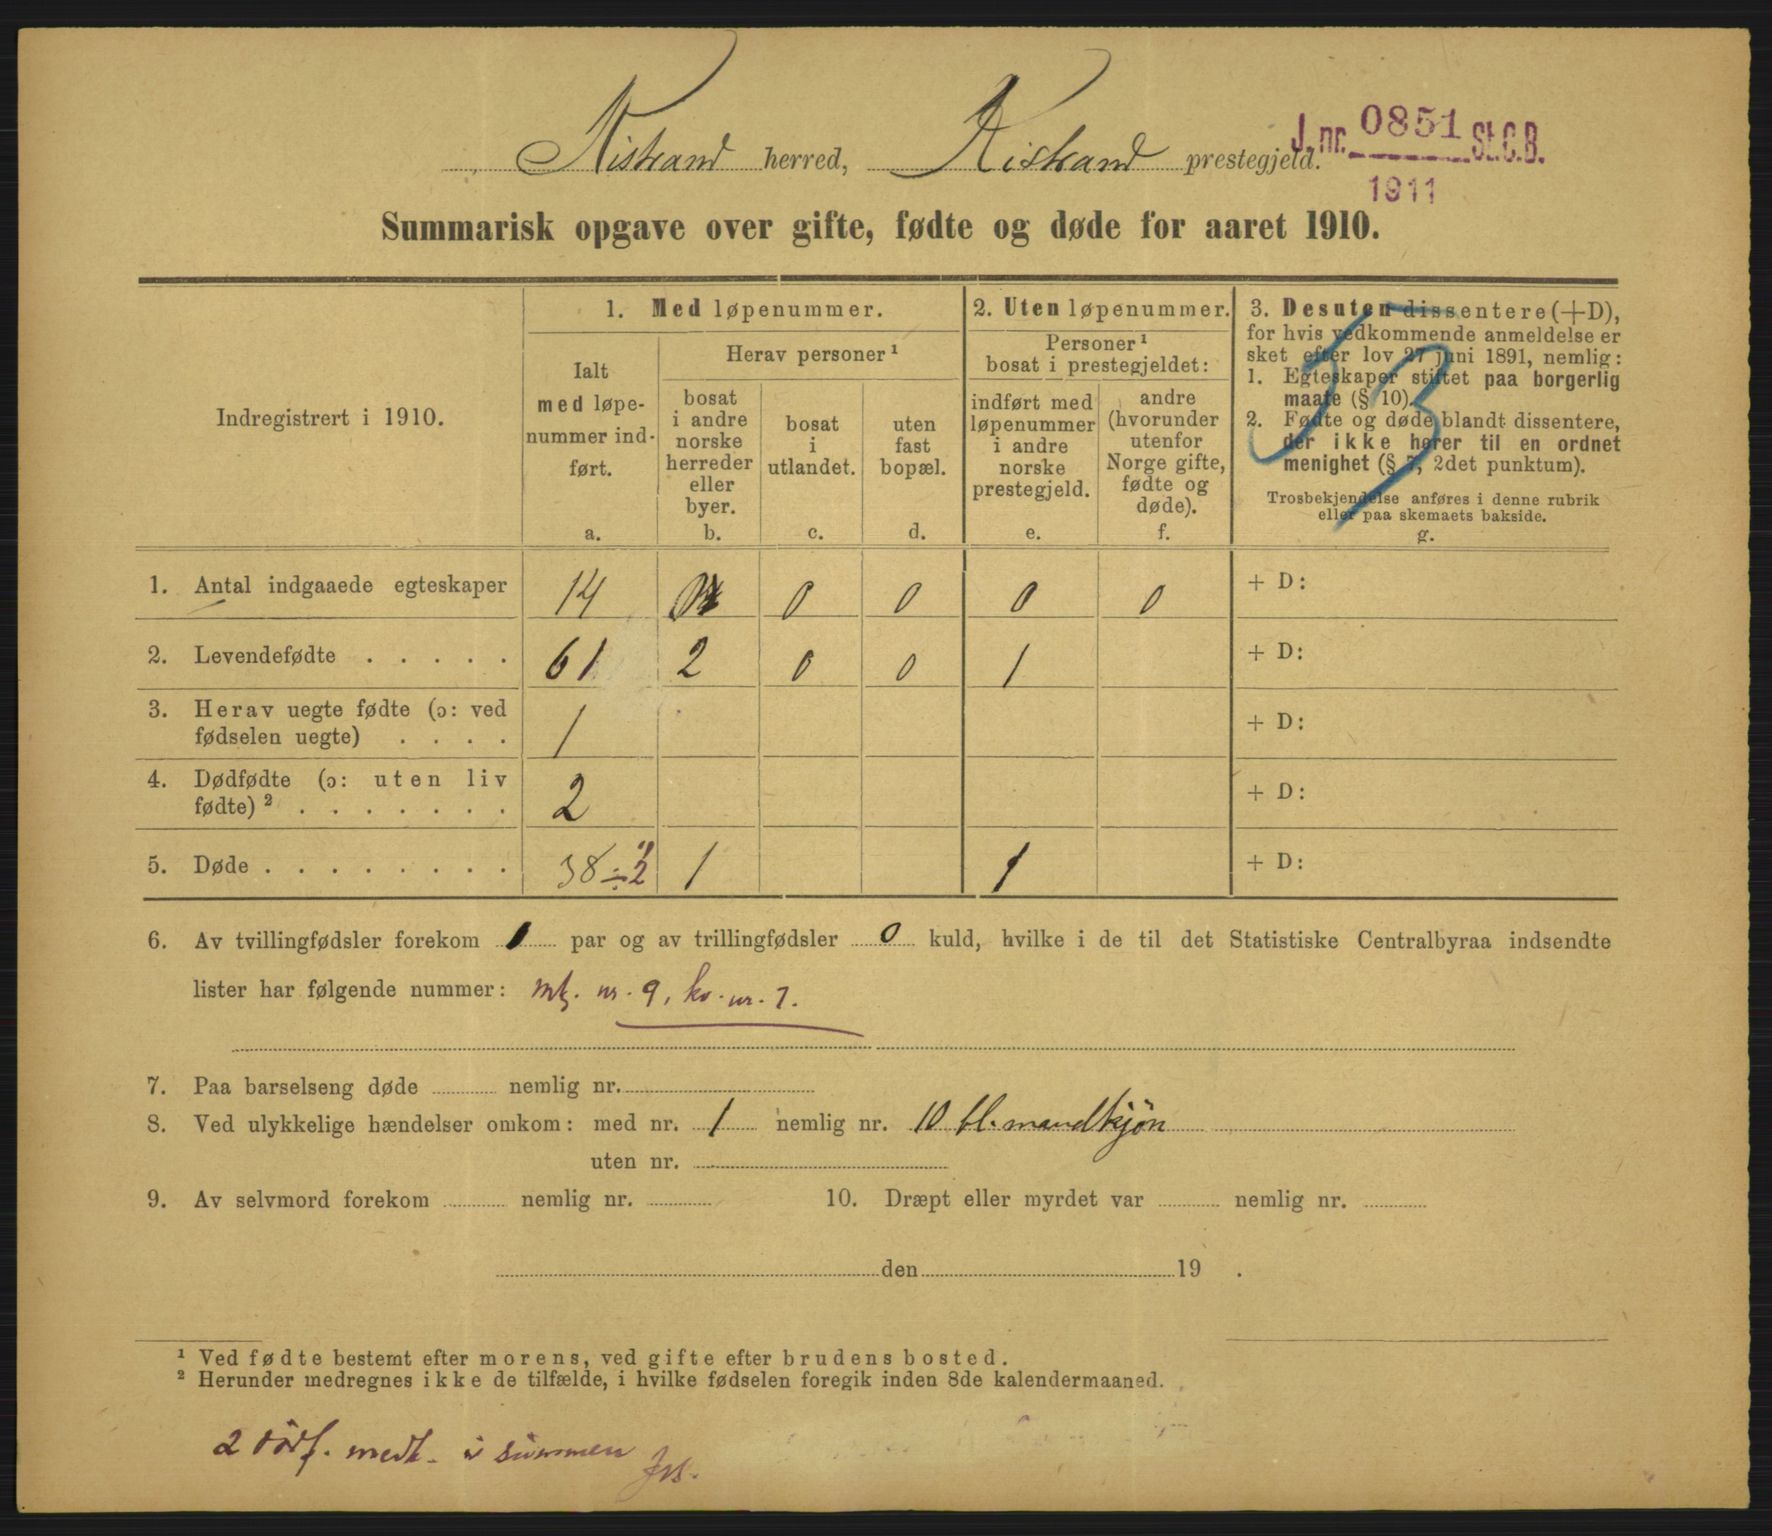 Kistrand herred, Kistrand prestegjeld.
J. nr. 0851 St. C. B.
1911
Summarisk opgave over gifte, fødte og døde for aaret 1910.
Indregistrert i 1910.
1. Med løpenummer.
Ialt
med løpe-
nummer ind-
ført.
a.
Herav personer ¹
bosat
i andre
norske
herreder
eller
byer.
b.
bosat
i
utlandet.
c.
uten
fast
bopæl.
d.
2. Uten løpenummer.
Personer ¹
bosat i prestegjeldet:
indført med
løpenummer
i andre
norske
prestegjeld.
e.
andre
(hvorunder
utenfor
Norge gifte,
fødte og
døde).
f.
3. Desuten dissentere (+D),
for hvis vedkommende anmeldelse er
sket efter lov 27 juni 1891, nemlig:
1. Egteskaper stiftet paa borgerlig
maate (§ 10).
2. Fødte og døde blandt dissentere,
der ikke hører til en ordnet
menighet (§ 7, 2det punktum).
Trosbekjendelse anføres i denne rubrik
eller paa skemaets bakside.
g.
53
1. Antal indgaaede egteskaper 14 0 0 0 0 + D:
2. Levendefødte . . . . . 61 2 0 0 1 + D:
3. Herav uegte fødte (ɔ: ved
fødselen uegte) . . . . 1 + D:
4. Dødfødte (ɔ: uten liv
fødte) ² . . . . . . . 2 + D:
5. Døde . . . . . . . . 38 ÷ 2 1 1 + D:
6. Av tvillingfødsler forekom 1 par og av trillingfødsler 0 kuld, hvilke i de til det Statistiske Centralbyraa indsendte
lister har følgende nummer: mk. nr. 9, kv. nr. 7.
7. Paa barselseng døde nemlig nr.
8. Ved ulykkelige hændelser omkom: med nr. 1 nemlig nr. 10 bl. mandkjøn
uten nr.
9. Av selvmord forekom nemlig nr. 10. Dræpt eller myrdet var nemlig nr.
den 19 .
¹ Ved fødte bestemt efter morens, ved gifte efter brudens bosted.
² Herunder medregnes ikke de tilfælde, i hvilke fødselen foregik inden 8de kalendermaaned.
2 dödf. medt. i summen